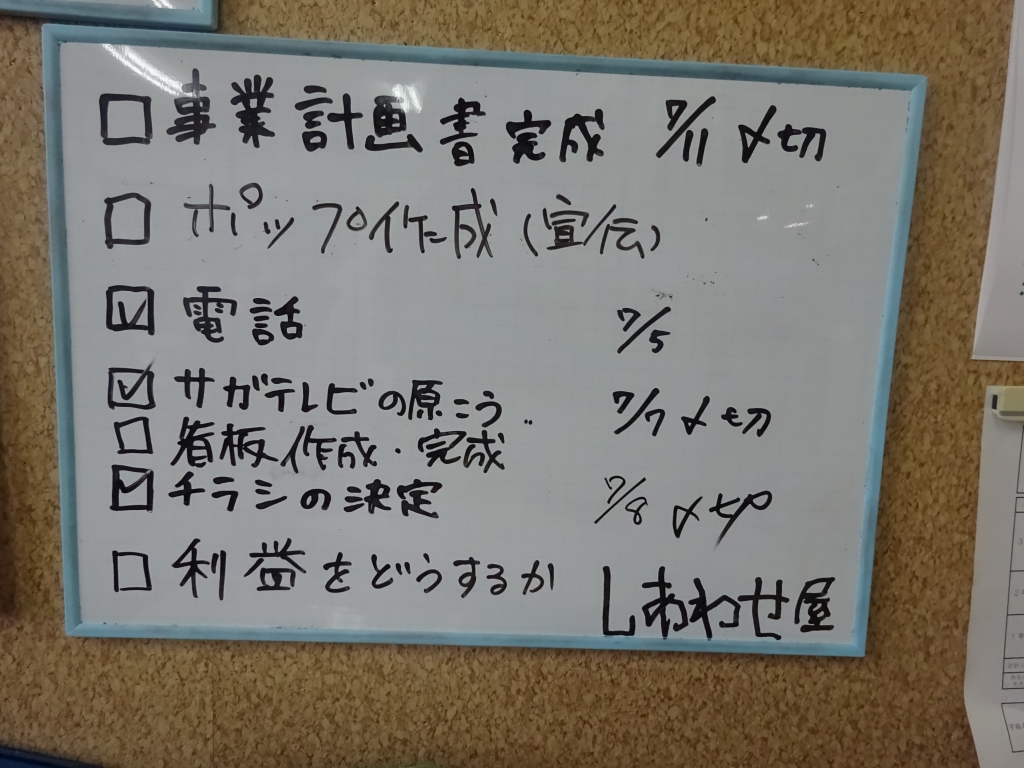 □ 事業計画書完成 7/11 〆切
□ ポップ作成(宣伝)
☑ 電話 7/5
☑ サガテレビの原こう 7/7 〆切
□ 看板作成・完成
☑ チラシの決定 7/8 〆切
□ 利益をどうするか
しあわせ屋